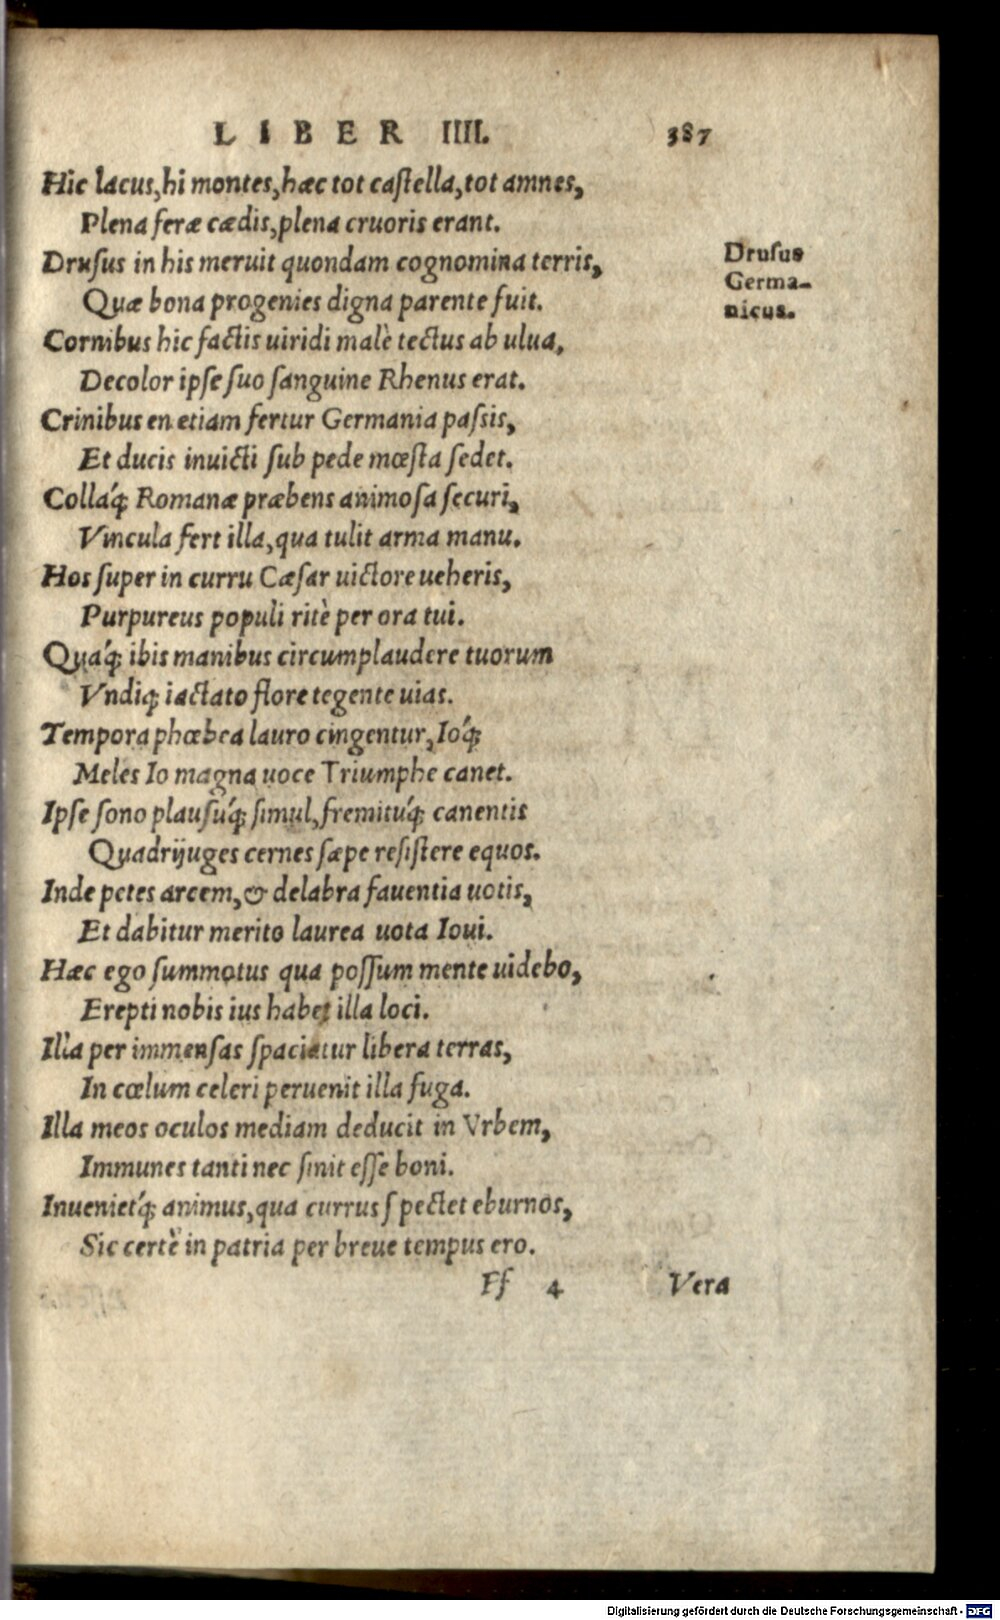 LIBER IIII. 387
Hic lacus, hi montes, hæc tot castella, tot amnes,
Plena feræ cædis, plena cruoris erant.
Drusus in his meruit quondam cognomina terris,
Drusus
Germa-
nicus.
Quæ bona progenies digna parente fuit.
Cornibus hic factis uiridi malè tectus ab ulua,
Decolor ipse suo sanguine Rhenus erat.
Crinibus en etiam fertur Germania passis,
Et ducis inuicti sub pede mœsta sedet.
Colláq; Romanæ præbens animosa securi,
Vincula fert illa, qua tulit arma manu.
Hos super in curru Cæsar uictore ueheris,
Purpureus populi ritè per ora tui.
Quáq; ibis manibus circumplaudere tuorum
Vndiq; iactato flore tegente uias.
Tempora phœbea lauro cingentur, Ióq;
Meles Io magna uoce Triumphe canet.
Ipse sono plausúq; simul, fremitúq; canentis
Quadrijuges cernes sæpe resistere equos.
Inde petes arcem, & delabra fauentia uotis,
Et dabitur merito laurea uota Ioui.
Hæc ego summotus qua possum mente uidebo,
Erepti nobis ius habet illa loci.
Illa per immensas spaciatur libera terras,
In cœlum celeri peruenit illa fuga.
Illa meos oculos mediam deducit in Vrbem,
Immunes tanti nec sinit esse boni.
Inuenietq́; animus, qua currus spectet eburnos,
Sic certè in patria per breue tempus ero.
Ff 4 Vera
Digitalisierung gefördert durch die Deutsche Forschungsgemeinschaft - DFG